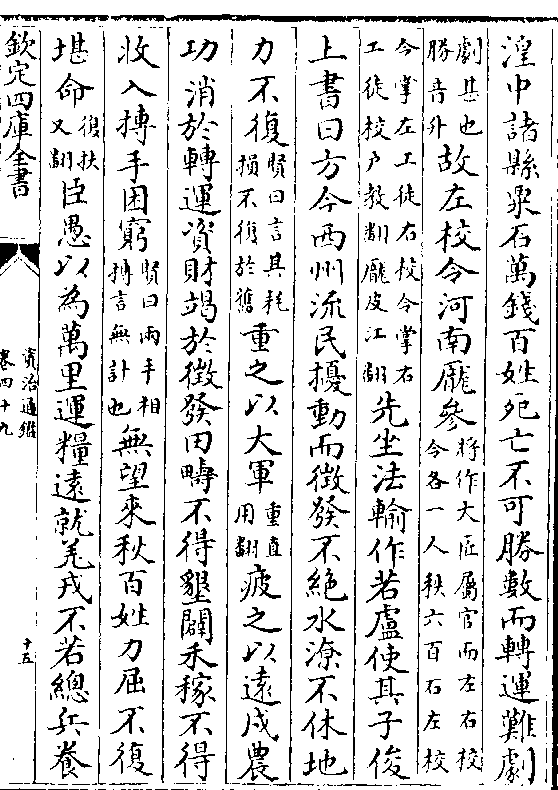 湟中諸縣粟石萬錢百姓死亡不可勝數而轉運難劇
劇甚也勝音升故左校令河南龐參將作大匠屬官而左右校令各一人秩六百石左校
令掌左工徒右校令掌右工徒校戶教翻龐皮江翻先坐法輸作若盧使其子俊
上書曰方今西州流民擾動而徵發不絕水潦不休地
力不復賢曰言其耗損不復於舊重之以大軍重直用翻疲之以遠戍農
功消於轉運資財竭於徵發田疇不得墾闢禾稼不得
收入搏手困窮賢曰兩手相搏言無計也無望來秋百姓力屈不復
堪命復扶又翻臣愚以為萬里運糧遠就羌戎不若總兵養
欽定四庫全書
資治通鑑
卷四十九
十五